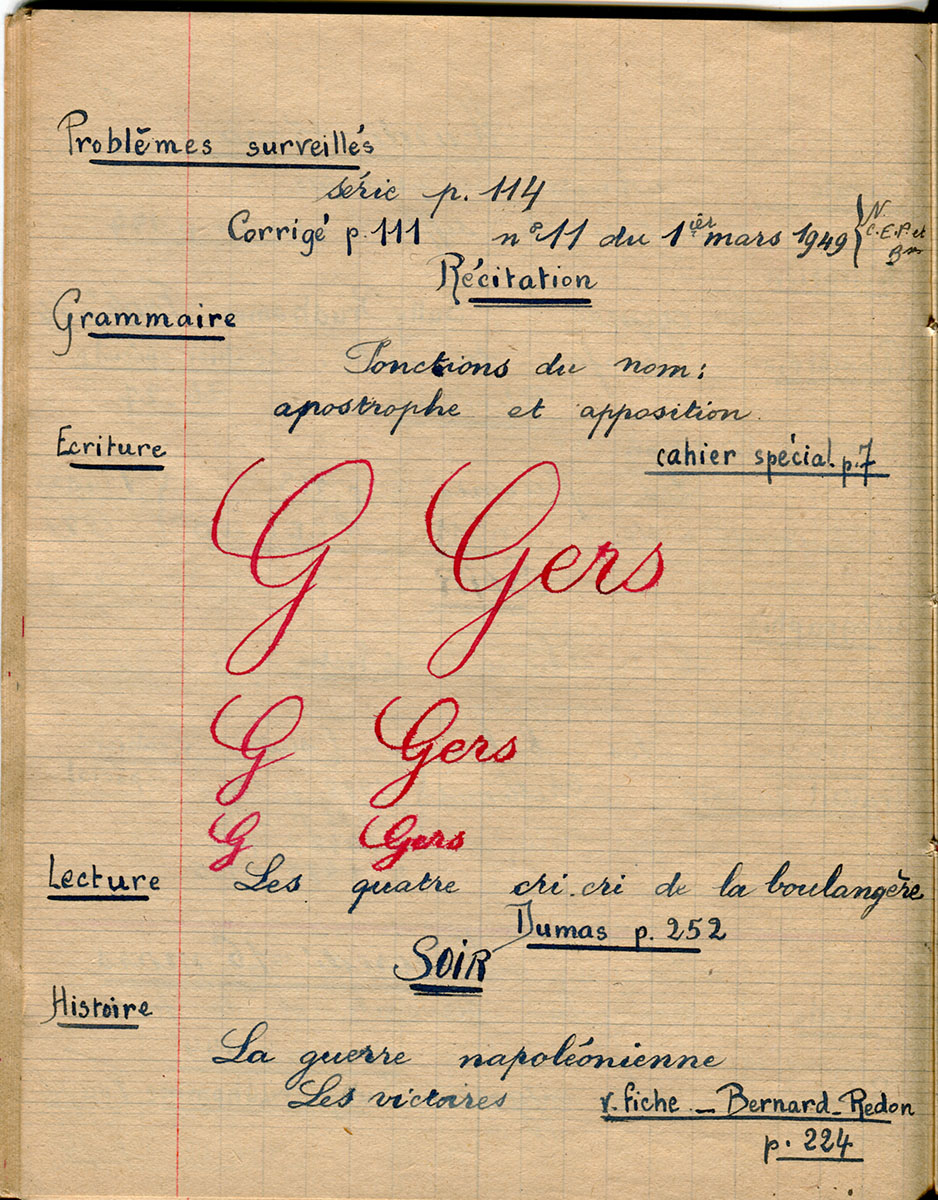 Problèmes surveillés
série p. 114
Corrigé p. 111 n° 11 du 1ier mars 1949 N.
C.E.P. et
Récitation
Grammaire
Fonctions du nom :
apostrophe et apposition.
Ecriture
cahier spécial. p. 7
G Gers
G Gers
G Gers
Lecture Les quatre cri-cri de la boulangère
Dumas p. 252
SOIR
Histoire
La guerre napoléonienne
Les victoires v. fiche - Bernard-Redon
p. 224